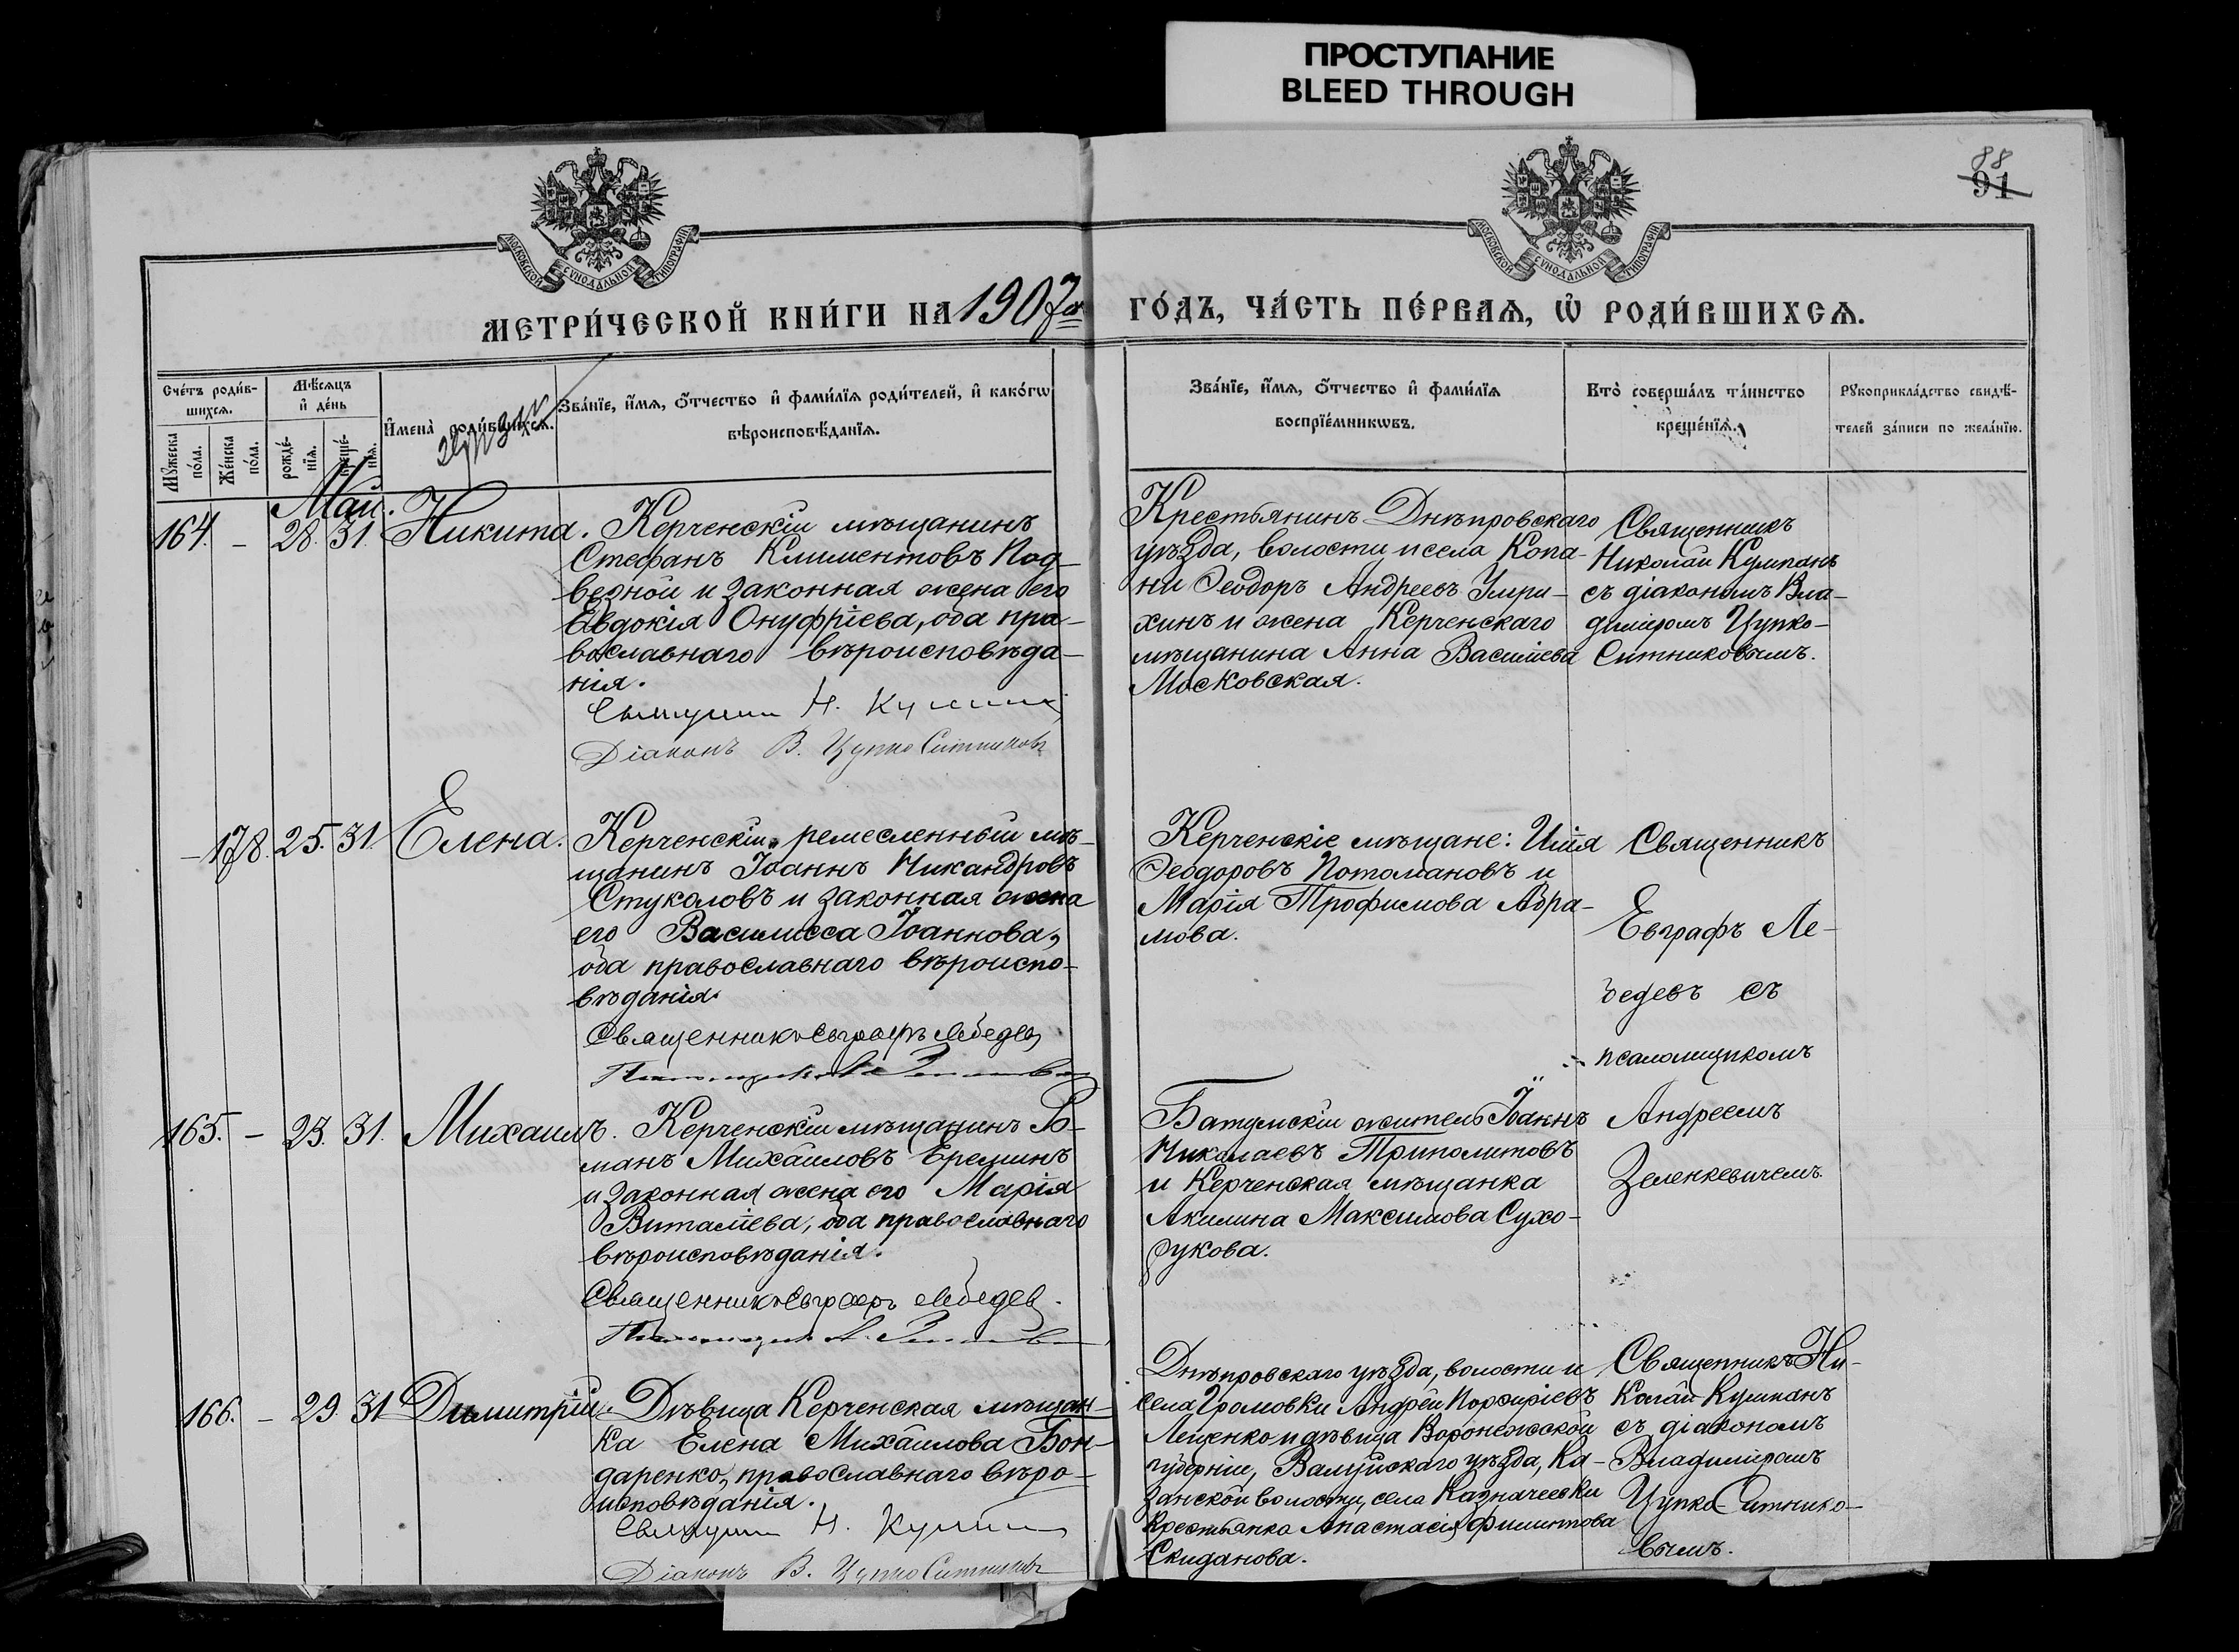 ПРОСТУПАНИЕ
BLEED THROUGH
88
91
МОСКОВСКОЙ СѴНОДАЛЬНОЙ ТИПОГРАФІИ
МОСКОВСКОЙ СѴНОДАЛЬНОЙ ТИПОГРАФІИ
МЕТРИ́ЧЕСКОЙ КНИ́ГИ НА 1907й ГО́ДЪ, ЧА́СТЬ ПЕ́РВАЯ, Ѡ҆ РОДИ́ВШИХСЯ.
Сче́тъ роди́в-
шихся.
Мѣ́сяцъ
и҆ де́нь
Му́жеска
по́ла.
Же́нска
по́ла.
рожде́-
нїя.
креще́-
нїя.
И҆мена̀ роди́вшихся.
Зва́нїе, и҆́мя, ѻ҆́тчество и҆ фами́лїя роди́телей, и҆ како́гѡ
вѣроисповѣ́данїя.
Зва́нїе, и҆́мя, ѻ҆́тчество и҆ фами́лїя
воспрїе́мникѡвъ.
Кто̀ соверша́лъ та́инство
креще́нїя.
Рукоприкла́дство свидѣ́-
телей за́писи по жела́нїю.
Май.
164. – 28. 31. Никита.
Керченскій мѣщанинъ
Стефанъ Климентовъ Под-
везной и законная жена его
Евдокія Онуфріева, оба пра-
вославнаго вѣроисповѣда-
нія.
Священникъ Н. Кумпанъ
Діаконъ В. Цупко Ситниковъ
Крестьянинъ Днѣпровскаго
уѣзда, волости и села Копа-
ни Ѳеодоръ Андреевъ Умри-
хинъ и жена Керченскаго
мѣщанина Анна Василіева
Московская.
Священникъ
Николай Кумпанъ
съ діакономъ Вла-
диміромъ Цупко-
Ситниковымъ.
– 178. 25. 31. Елена.
Керченскій ремесленный мѣ-
щанинъ Іоаннъ Никандровъ
Стуколовъ и законная жена
его Василисса Іоаннова,
оба православнаго вѣроиспо-
вѣданія.
Священникъ Евграфъ Лебедев
Керченскіе мѣщане: Илія
Ѳеодоровъ Потомановъ и
Марія Трофимова Абра-
мова.
Священникъ
Евграфъ Ле-
бедевъ съ
псаломщикомъ
Андреемъ
Зеленкевичемъ.
165. – 23. 31. Михаилъ.
Керченскій мѣщанинъ Ро-
манъ Михайловъ Ереминъ
и законная жена его Марія
Виталіева, оба православнаго
вѣроисповѣданія.
Священникъ Евграфъ Лебедев.
Батумскій житель Іоаннъ
Николаевъ Триполитовъ
и Керченская мѣщанка
Акилина Максимова Сухо-
рукова.
166. – 29. 31. Димитрій.
Дѣвица Керченская мѣщан-
ка Елена Михайлова Бон-
даренко, православнаго вѣро-
исповѣданія.
Священникъ Н. Кумпанъ
Діаконъ В. Цупко Ситниковъ
Днѣпровскаго уѣзда, волости и
села Громовки Андрей Порфиріевъ
Лещенко и дѣвица Воронежской
губерніи, Валуйскаго уѣзда, Ка-
занской волости, села Казначеевки
крестьянка Анастасія Филиппова
Скиданова.
Священникъ Ни-
колай Кумпанъ
съ діакономъ
Владиміромъ
Цупко-Ситнико-
вымъ.